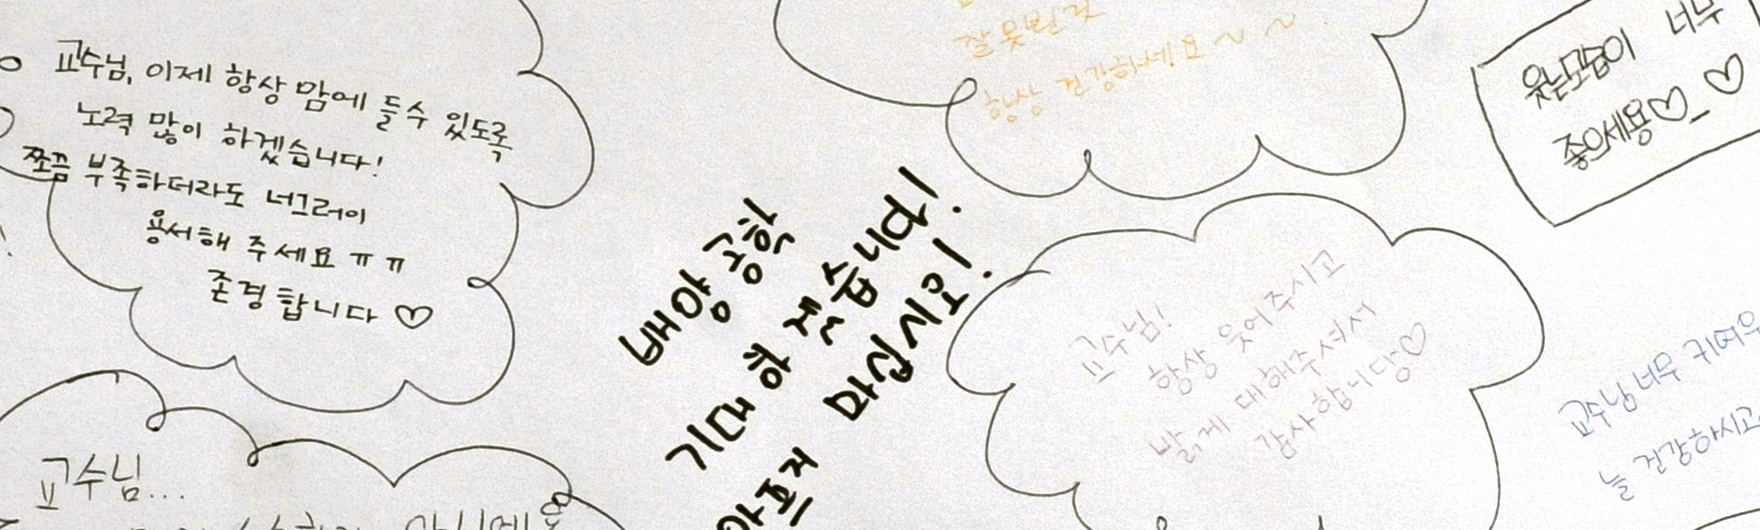 교수님, 이제 항상 맘에 들수 있도록
노력 많이 하겠습니다!
쪼끔 부족하더라도 너그러이
용서해 주세요 ㅠㅠ
존경합니다 ♡
교수님...
배양공학
기대하겠습니다!
아프지 마십시오!
잘못빈건
항상 건강하세요 ~ ~
웃는모습이 너무
좋으세용♡_♡
교수님!
항상 웃어주시고
밝게 대해주셔서
감사합니당♡
교수님 너무 귀여우
늘 건강하시고